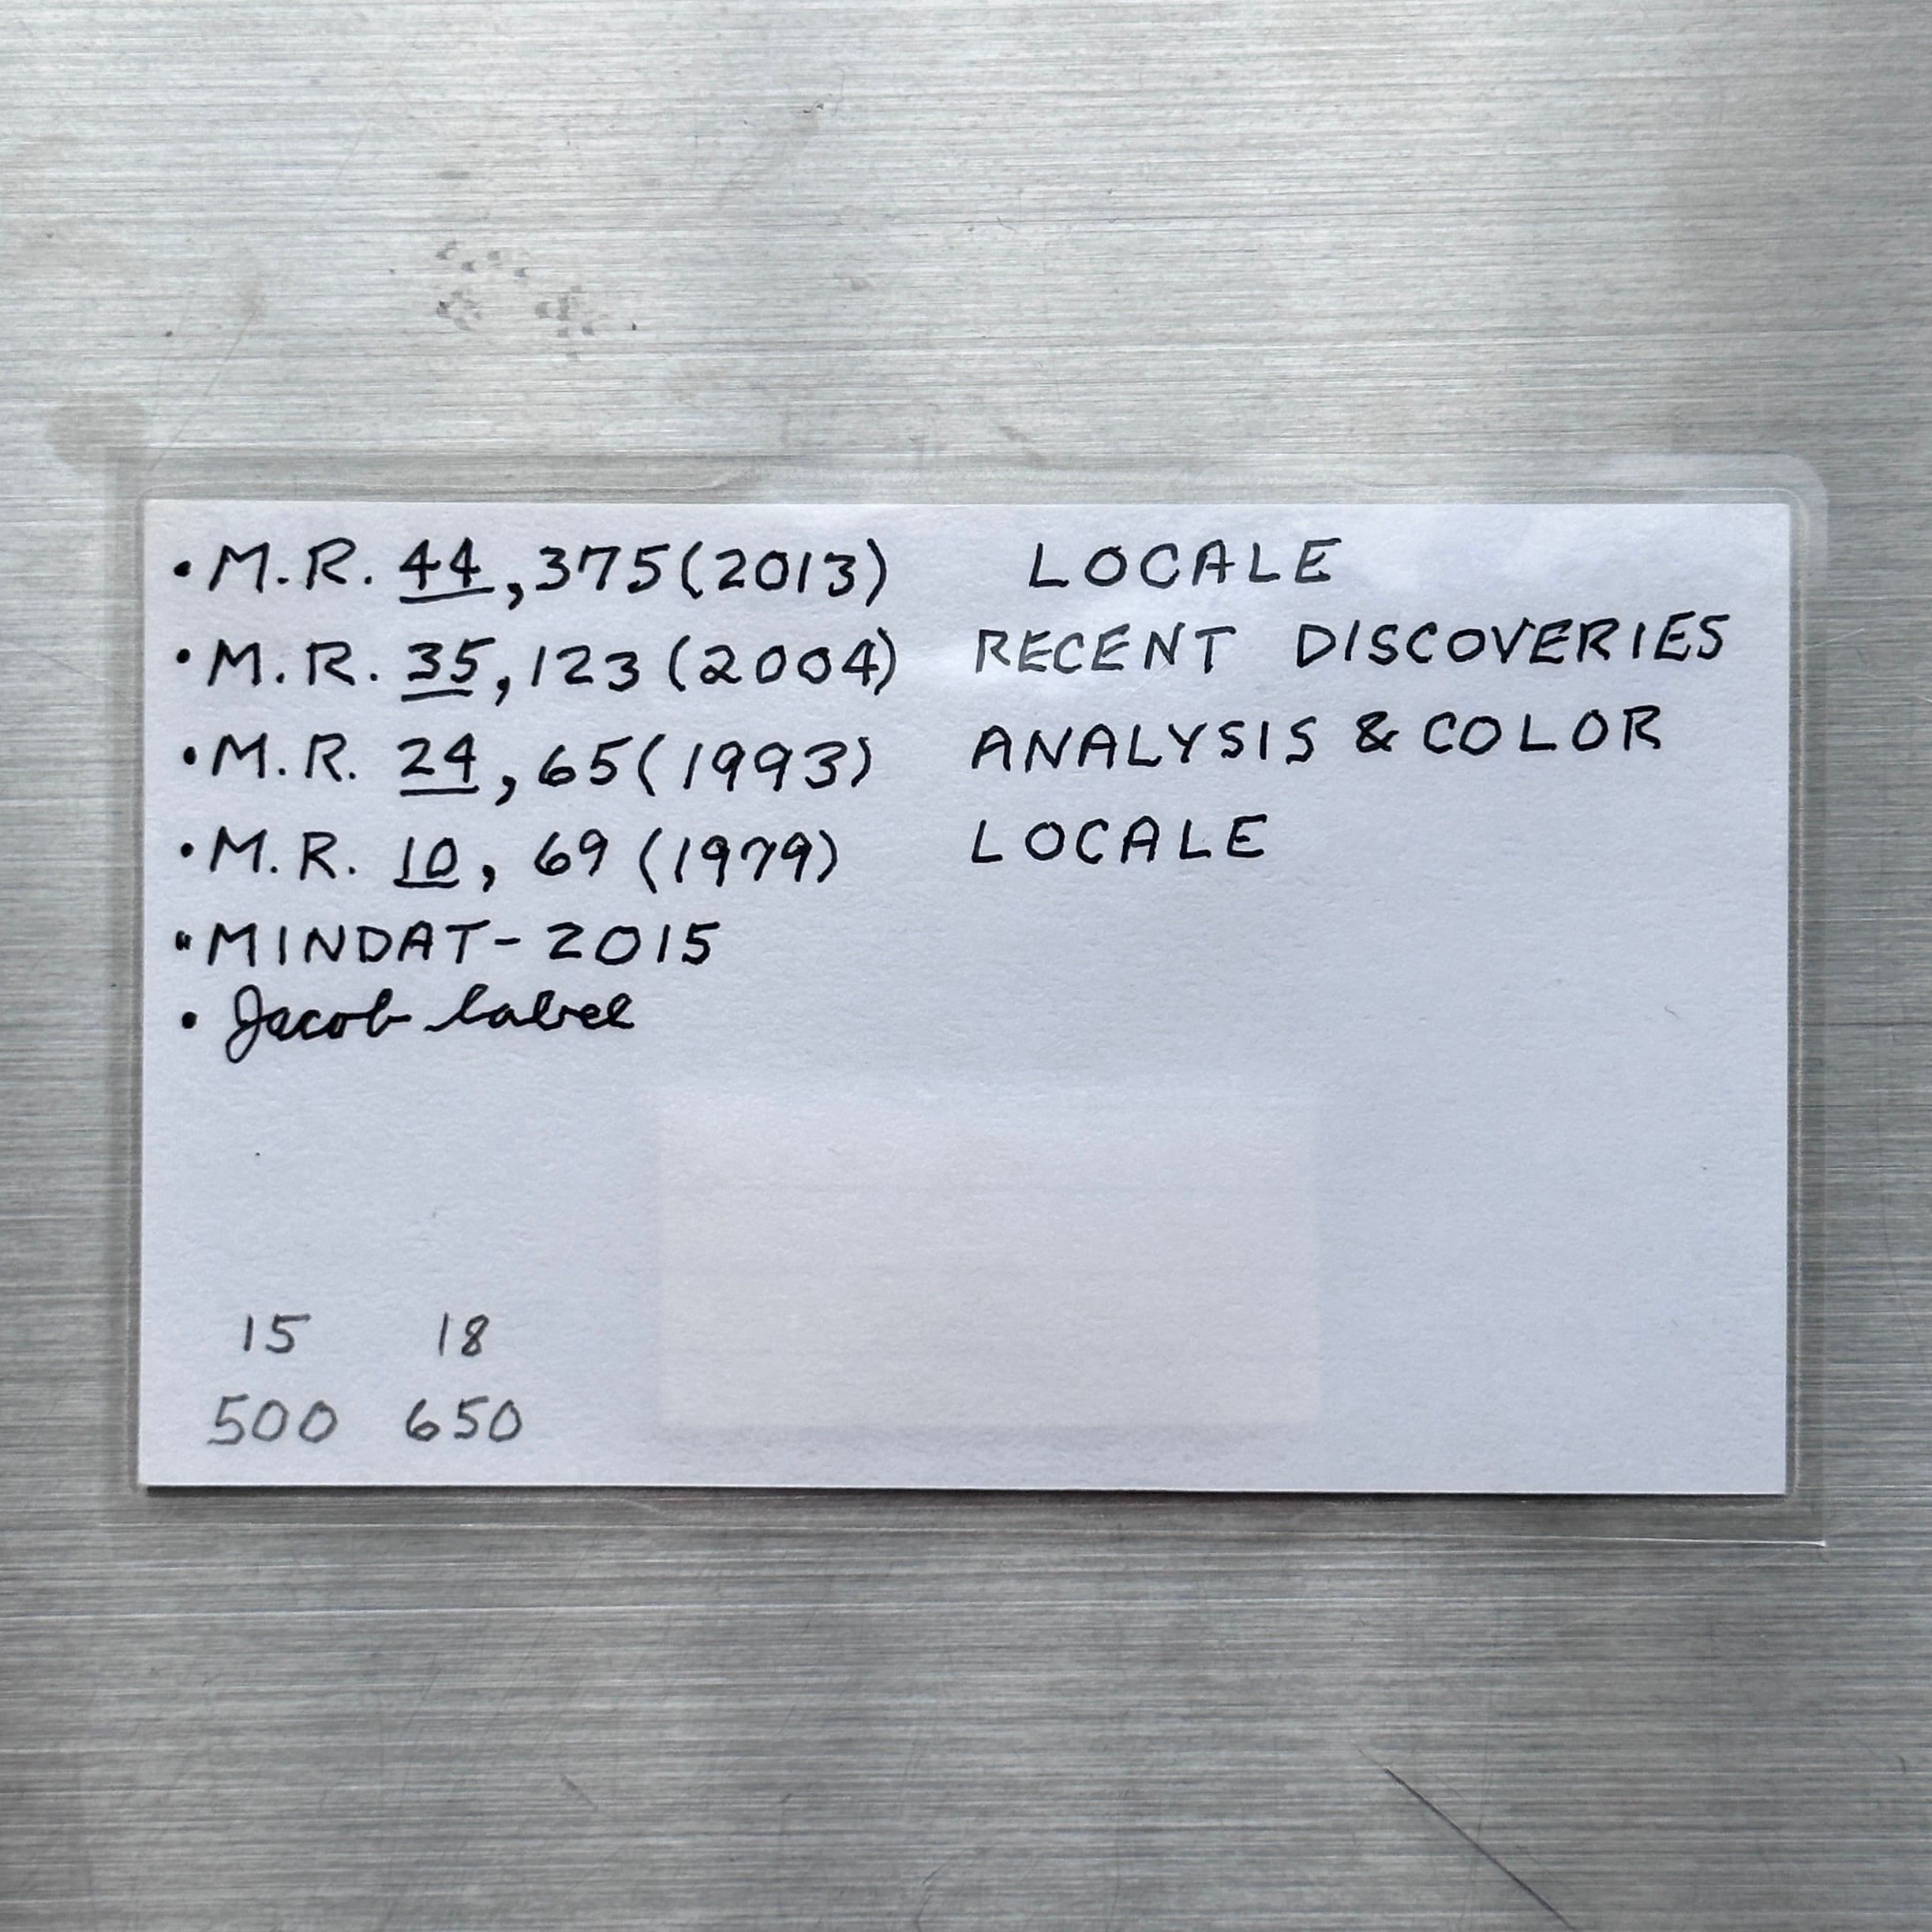 • M.R. 44, 375 (2013) LOCALE
• M.R. 35, 123 (2004) RECENT DISCOVERIES
• M.R. 24, 65 (1993) ANALYSIS & COLOR
• M.R. 10, 69 (1979) LOCALE
• MINDAT - 2015
• Jacob label
15 18
500 650